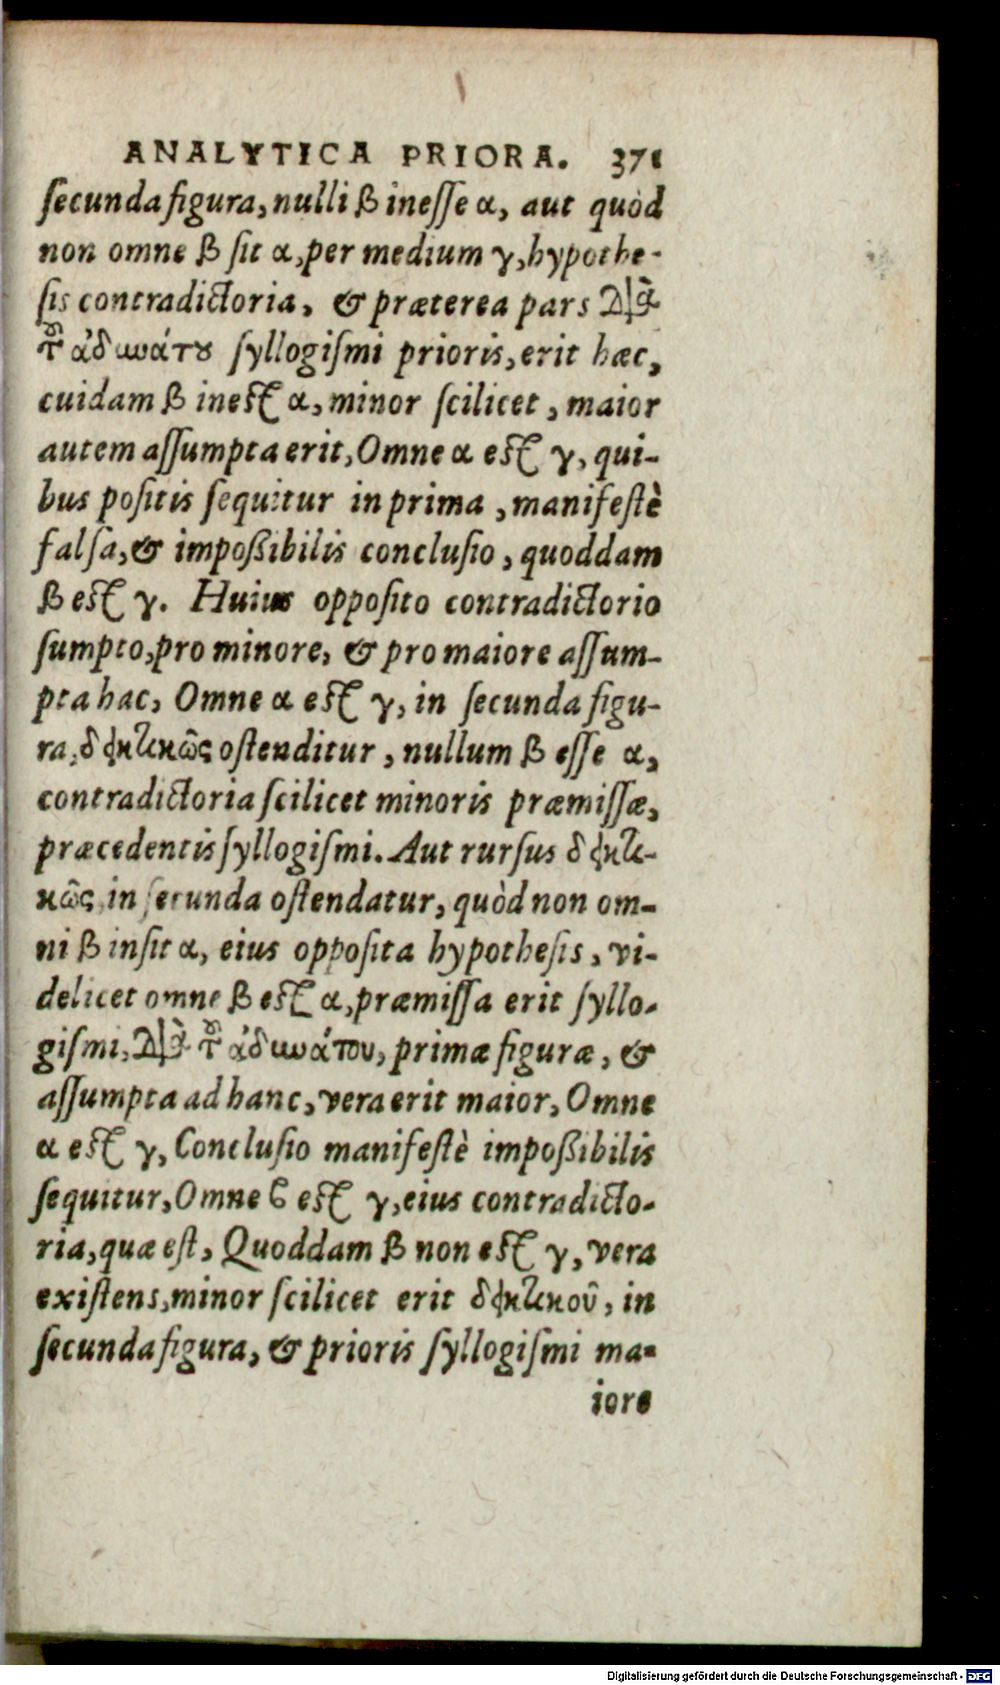 ANALYTICA PRIORA. 371
ſecunda figura, nulli β ineſſe α, aut quòd
non omne β ſit α, per medium γ, hypothe-
ſis contradictoria, & præterea pars Διὰ
τοῦ ἀδυνάτου ſyllogiſmi prioris, erit hæc,
cuidam β ineſt α, minor ſcilicet, maior
autem aſſumpta erit, Omne α eſt γ, qui-
bus poſitis ſequitur in prima, manifeſtè
falſa, & impoßibilis concluſio, quoddam
β eſt γ. Huius oppoſito contradictorio
ſumpto, pro minore, & pro maiore aſſum-
pta hac, Omne α eſt γ, in ſecunda figu-
ra, δεικτικῶς oſtenditur, nullum β eſſe α,
contradictoria ſcilicet minoris præmiſſæ,
præcedentis ſyllogiſmi. Aut rurſus δεικτι-
κῶς, in ſecunda oſtendatur, quòd non om-
ni β inſit α, eius oppoſita hypotheſis, vi-
delicet omne β eſt α, præmiſſa erit ſyllo-
giſmi, Διὰ τοῦ ἀδυνάτου, primæ figuræ, &
aſſumpta ad hanc, vera erit maior, Omne
α eſt γ, Concluſio manifeſtè impoßibilis
ſequitur, Omne ϐ eſt γ, eius contradicto-
ria, quæ eſt, Quoddam β non eſt γ, vera
exiſtens, minor ſcilicet erit δεικτικοῦ, in
ſecunda figura, & prioris ſyllogiſmi ma-
iore
Digitalisierung gefördert durch die Deutsche Forschungsgemeinschaft - DFG